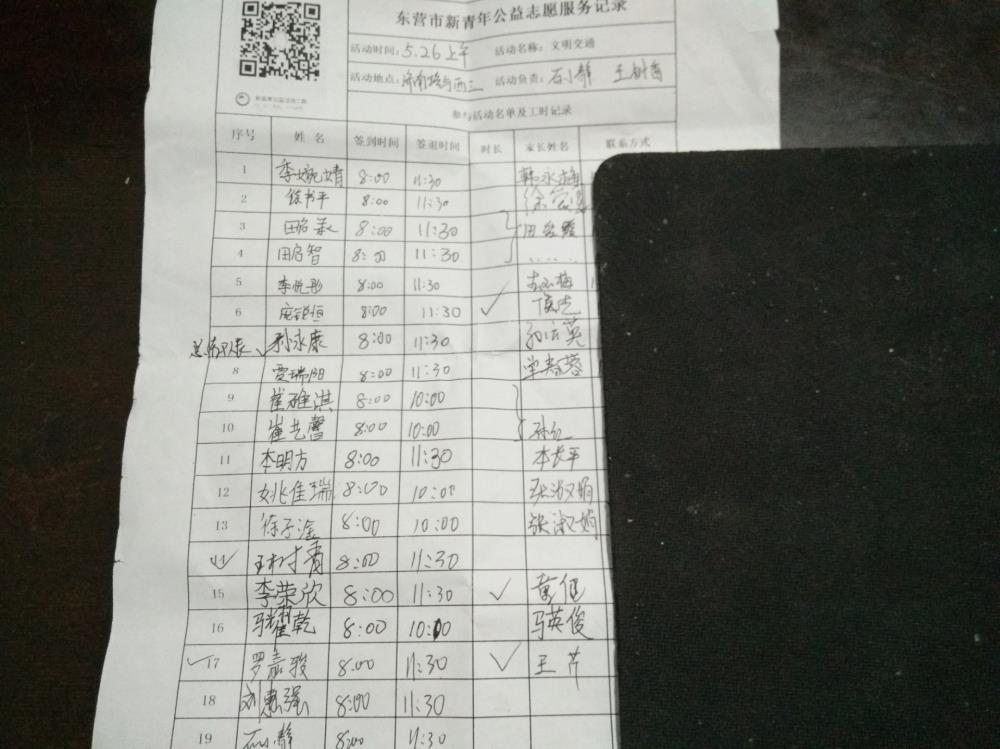 东营市新青年公益志愿服务记录
活动时间：5.26上午 活动名称：文明交通
活动地点：济南路与西三 活动负责：石静 王树青
参与活动名单及工时记录
序号 姓名 签到时间 签退时间 时长 家长姓名 联系方式
1 季婉婧 8:00 11:30 韩永梅
2 徐书平 8:00 11:30
3 8:00 11:30
4 田启智 8:00 11:30
5 李悦彤 8:00 11:30
6 庞锐恒 8:00 11:30 ✓
✓ 孙永康 8:00 11:30
8 贾瑞阳 8:00 11:30 单寿蓉
9 崔雅淇 8:00 10:00
10 崔艺馨 8:00 10:00 孙红
11 李明方 8:00 11:30 李长平
12 姚佳瑞 8:00 10:00 张淑娟
13 徐子淦 8:00 10:00 张淑娟
14 ✓ 王树青 8:00 11:30
15 李荣欣 8:00 11:30 ✓
16 马耀乾 8:00 10:00 马英俊
✓ 17 罗嘉骏 8:00 11:30 ✓ 王芹
18 刘惠强 8:00 11:30
19 石静 8:00 11:30